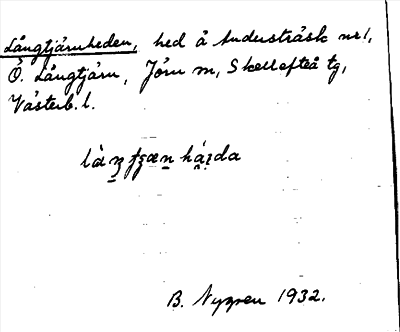 Långtjärnheden, hed å Andersträsk nr 1,
Ö. Långtjärn, Jörn sn, Skellefteå tg,
Västerb. l.
B. Nygren 1932.